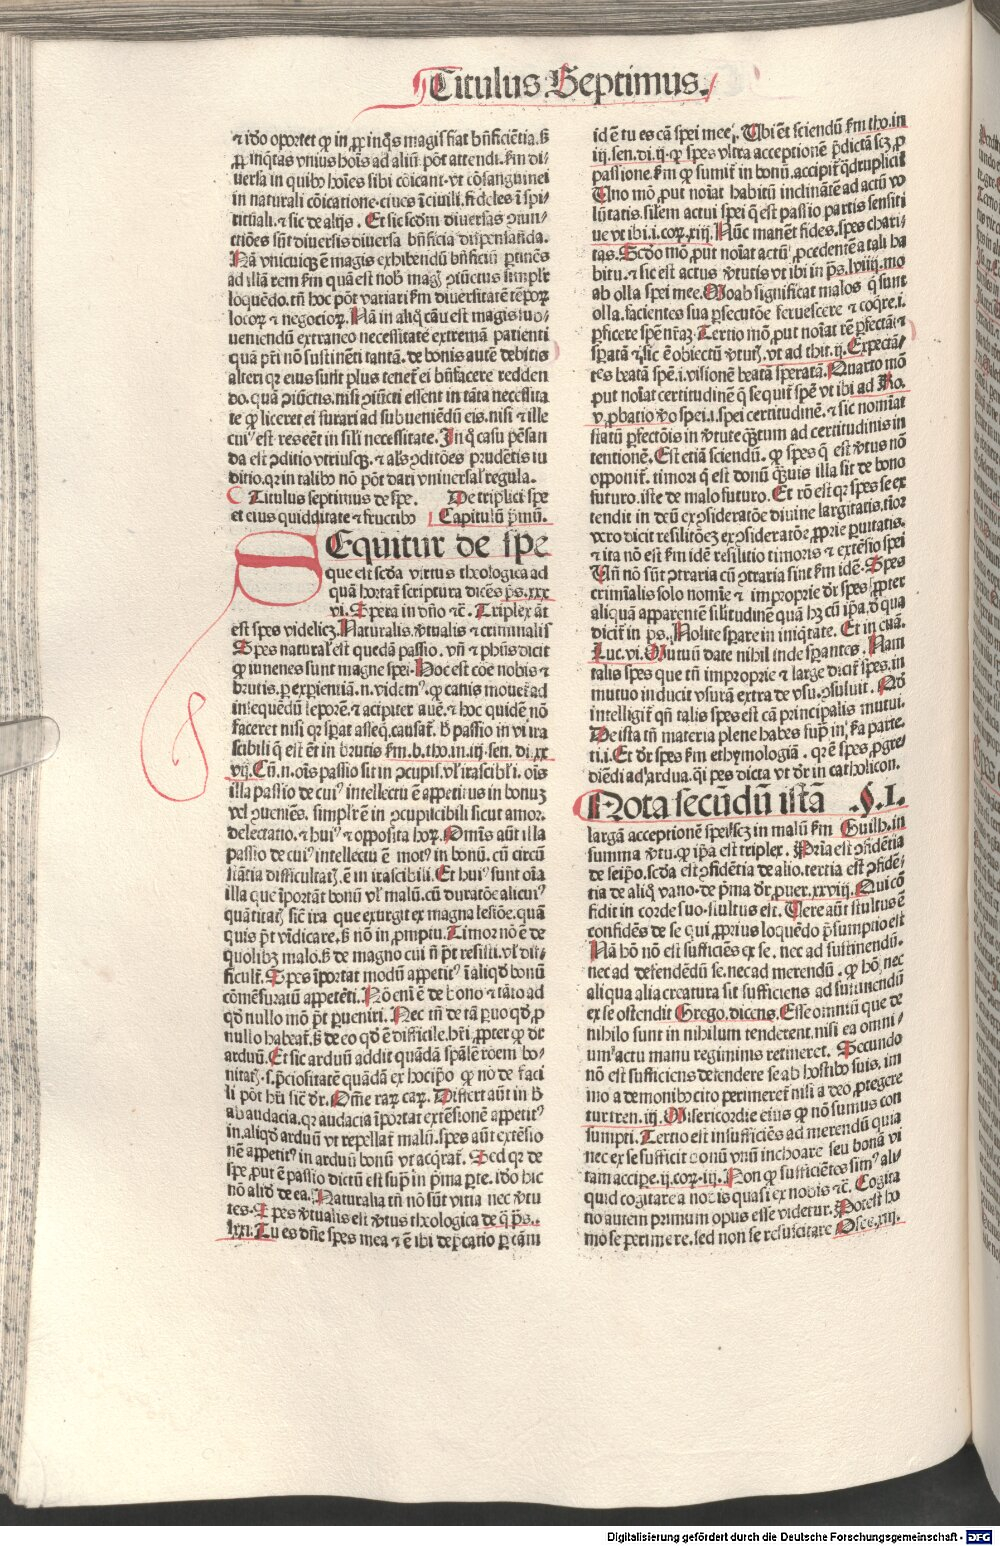 Titulus Septimus.
⁊ iđo oportet ꝙ in ꝓpinq̄s magis fiat bn̄ficiētia. s̄
ꝓpinq̄tas vnius hoīs ad aliū pōt attendi. ẜm di/
uersa in quibꝰ hoīes sibi cōicant. vt cōsanguinei
in naturali cōicatione. ciues ī ciuili. fideles ī spi/
rituali. ⁊ sic de alijs. Et sic scd̄m diuersas ꝯiun/
ctiōes sūt diuersis diuersa bn̄ficia dispensanda.
Nā vnicuiqꝫ ē magis exhibendū bn̄ficiū ꝑtinēs
ad illā rem ẜm quā est nob̄ magꝭ ꝯiūctus simpl̄r
loquēdo. tn̄ hoc pōt variari ẜm diuersitatē tēpoꝝ
locoꝝ ⁊ negocioꝝ. Nā in aliq̄ cāu est magis suc/
ueniendū extraneo necessitatē extremā patienti
quā pr̄i nō sustinēti tantā. de bonis autē debitis
alteri qꝛ eius sunt plus tenet̄ ei bn̄facere redden
do. quā ꝯiūctis. nisi ꝯiūcti essent in tāta necessita
te ꝙ liceret ei furari ad subueniēdū eis. nisi ⁊ ille
cuiꝰ est res eēt in sil̄i necessitate. In q̄ casu pēsan
da est ꝯditio vtriusqꝫ. ⁊ al̄s ꝯditōes prudētis iu
ditio. qꝛ in talibꝰ nō pōt dari vniuersal̄ regula.
Titulus septimus de spe. De triplici spe
et eius quidditate ⁊ fructibꝰ Capitulū p̄mū.
SEquitur de spe
que est scd̄a virtus theologica ad
quā hortat̄ scriptura dicēs ps. xxx
vi. Spera in dn̄o ⁊c̄. Triplex āt
est spes videlicꝫ. Naturalis. v̄tualis ⁊ criminalis
Spes natural̄ est quedā passio. vn̄ ⁊ ph̄us dicit
ꝙ iuuenes sunt magne spei. Hoc est cōe nobis ⁊
brutis. ꝑ exꝑieniā. n. videmꝰ. ꝙ canis mouet̄ ad
insequēdū leporē. ⁊ acipiter auē. ⁊ hoc quidē nō
faceret nisi qꝛ sꝑat asseq̄. causat̄. s̄ passio in vi ira
scibili q̄ est ēt in brutis ẜm. b. tho. in. iij. sen. di. xx
vij. Cū. n. oīs passio sit in ꝯcupis. vl̓ irascibl̓i. oīs
illa passio de cuiꝰ intellectu ē appetitus in bonuꝫ
vel ꝯueniēs. simpl̄r ē in ꝯcupiscibili sicut amor.
delectatio. ⁊ huiꝰ ⁊ opposita hoꝝ. Omīs aūt illa
passio de cuiꝰ intellectu ē motꝰ in bonū. cū circū
stātia difficultatꝭ ē in irascibili. Et huiꝰ sunt oīa
illa que īportāt bonū vl̓ malū. cū duratōe alicuiꝰ
quātitatꝭ sic̄ ira que exurgit ex magna lesiōe. quā
quis p̄t vīdicare. s̄ nō in ꝓmptu. Timor nō ē de
quolibꝫ malo. s̄ de magno cui ñ p̄t resisti. vl̓ dif/
ficult̄. Spes īportat modū appetitꝰ ī aliqd̄ bonū
cōmēsuratū appetēti. Nō eni ē de bono ⁊ tāto ad
qd̄ nullo mō p̄t ꝑueniri. Nec tn̄ de tā ꝑuo qd̄ ꝓ
nullo habeat̄. s̄ de eo qd̄ ē difficile. hr̄i ꝓpter ꝙ dr̄
arduū. Et sic arduū addit quādā spālē rōem bo/
nitatꝭ. s. p̄ciositatē quādā ex hoc ip̄o ꝙ nō de faci
li pōt hr̄i sic̄ dr̄. Om̄e raꝝ caꝝ. Differt aūt in s̄
ab audacia. qꝛ audacia īportat extēsionē appetitꝰ
in. aliqd̄ arduū vt repellat̄ malū. spes aūt extēsio
nē appetitꝰ in arduū bonū vt acq̄rat̄. Sed qꝛ de
spe. ꝓut ē passio dictū est sup̄ in p̄ma ꝑte. iđo hic
nō aliđ de ea. Naturalia tn̄ nō sūt vitia nec v̄tu
tes. Spes v̄tualis est v̄tus theologica de q̄ ps.
lxxi. Tu es dn̄e spes mea ⁊ ē ibi dep̄catio ꝑ cām
id ē tu es cā spei mee. Vbi ēt sciendū ẜm tho. in
iij. sen. di. ij. ꝙ spes vltra acceptionē p̄dictā scꝫ ꝓ
passione. ẜm ꝙ sumit̄ in bonū. accipit̄ q̄druplicit̄
Vno mō ꝓut noīat habitū inclinātē ad actū vo
lūtatis. sil̄em actui spei q̄ est passio partis sensiti
ue vt ibi. i. coꝝ. xiij. Nūc manēt fides. spes chari/
tas. Scd̄o mō ꝓut noīat actū ꝓcedentē a tali ha
bitu. ⁊ sic est actus v̄tutis vt ibi in ps. lviiij. mo
ab olla spei mee. Moab significat malos q̄ sunt
olla. facientes sua ꝑsecutōe feruescere ⁊ coq̄re. i.
ꝑficere spē nr̄aꝫ. Tertio mō. ꝓut noīat rē ꝑfectā ⁊
sꝑatā ⁊ sic ē obiectū v̄tutꝭ. vt ad thit. ij. Expectā/
tes beatā spē. i. visionē beatā speratā. Quarto mō
ꝓut noīat certitudinē q̄ sequit̄ spē vt ibi ad Ro.
v. ꝓbatio v̄o spei. i. spei certitudinē. ⁊ sic nomīat
statū ꝑfectōis in v̄tute q̄ꝫtum ad certitudinis in
tentionē. Est etiā sciendū. ꝙ spes q̄ est v̄tus nō
opponit̄. timori q̄ est donū q̄ꝫuis illa sit de bono
futuro. iste de malo futuro. Et rō est qꝛ spes se ex
tendit in deū ex ꝯsideratōe diuine largitatis. tīor
vero dicit resilitōeꝫ ex ꝯsideratōe ꝓprie ꝑuitatis.
⁊ ita nō est ẜm idē resilitio timoris ⁊ extēsio spei
Vn̄ nō sūt ꝯtraria cū ꝯtraria sint ẜm idē. Spes
crimīalis solo nomīe ⁊ improprie dr̄ spes ꝓpter
aliquā apparentē silitudinē quā hꝫ cū ip̄a. đ qua
dicit̄ in ps. Nolite sꝑare in iniq̄tate. Et in euā.
Luc. vi. Mutuū date nihil inde sꝑantes. Nam
talis spes que tn̄ improprie ⁊ large dicit̄ spes. in
mutuo inducit vsurā extra de vsu. ꝯsuluit. Nō
intelligit̄ qn̄ talis spes est cā principalis mutui.
De ista tn̄ materia plene habes sup̄ in ẜa parte.
ti. i. Et dr̄ spes ẜm ethymologiā. qꝛ ē spes. ꝓgre/
diēdi ad ardua. q̄i pes dicta vt dr̄ in catholicon.
Nota secūdū istā .§. I.
largā acceptionē spei scꝫ in malū ẜm Guilh. in
summa v̄tu. ꝙ ip̄a est triplex. Pr̄ia est ꝯfidētia
de seip̄o. scd̄a est ꝯfidētia de alio. tertia est ꝯfidē/
tia de aliq̄ vano. de p̄ma dr̄. puer. xxviij. Qui cō
fidit in corde suo. stultus est. Vere aūt stultus ē
confidēs de se qui. ꝓprius loquēdo p̄sumptio est
Nā hō nō est sufficiēs ex se. nec ad sustinendū.
nec ad defendēdū se. nec ad merendū. ꝙ hō nec
aliqua alia creatura sit sufficiens ad sustinendū
ex se ostendit Grego. dicens. Esse omniū que de
nihilo sunt in nihilum tenderent. nisi ea omni/
umꝰ actu manu regiminis retineret. Secundo
nō est sufficiens defendere se ab hostibꝰ suis. im
mo a demonibꝰ cito perimeret̄ nisi a deo ꝓtegere
tur tren. iij. Misericordie eius ꝙ nō sumus con
sumpti. Tertio est insufficiēs ad merendū quia
nec ex se sufficit bonū vnū inchoare seu bonā vi
tam accipe. ij. coꝝ. iij. Non ꝙ sufficiētes simꝰ ali/
quid cogitare a nobis quasi ex nobis ⁊c̄. Cogita
tio autem primum opus esse videtur. Potest hō
mō se perimere. sed non se resuscitare Osee. xiij.
Digitalisierung gefördert durch die Deutsche Forschungsgemeinschaft - DFG